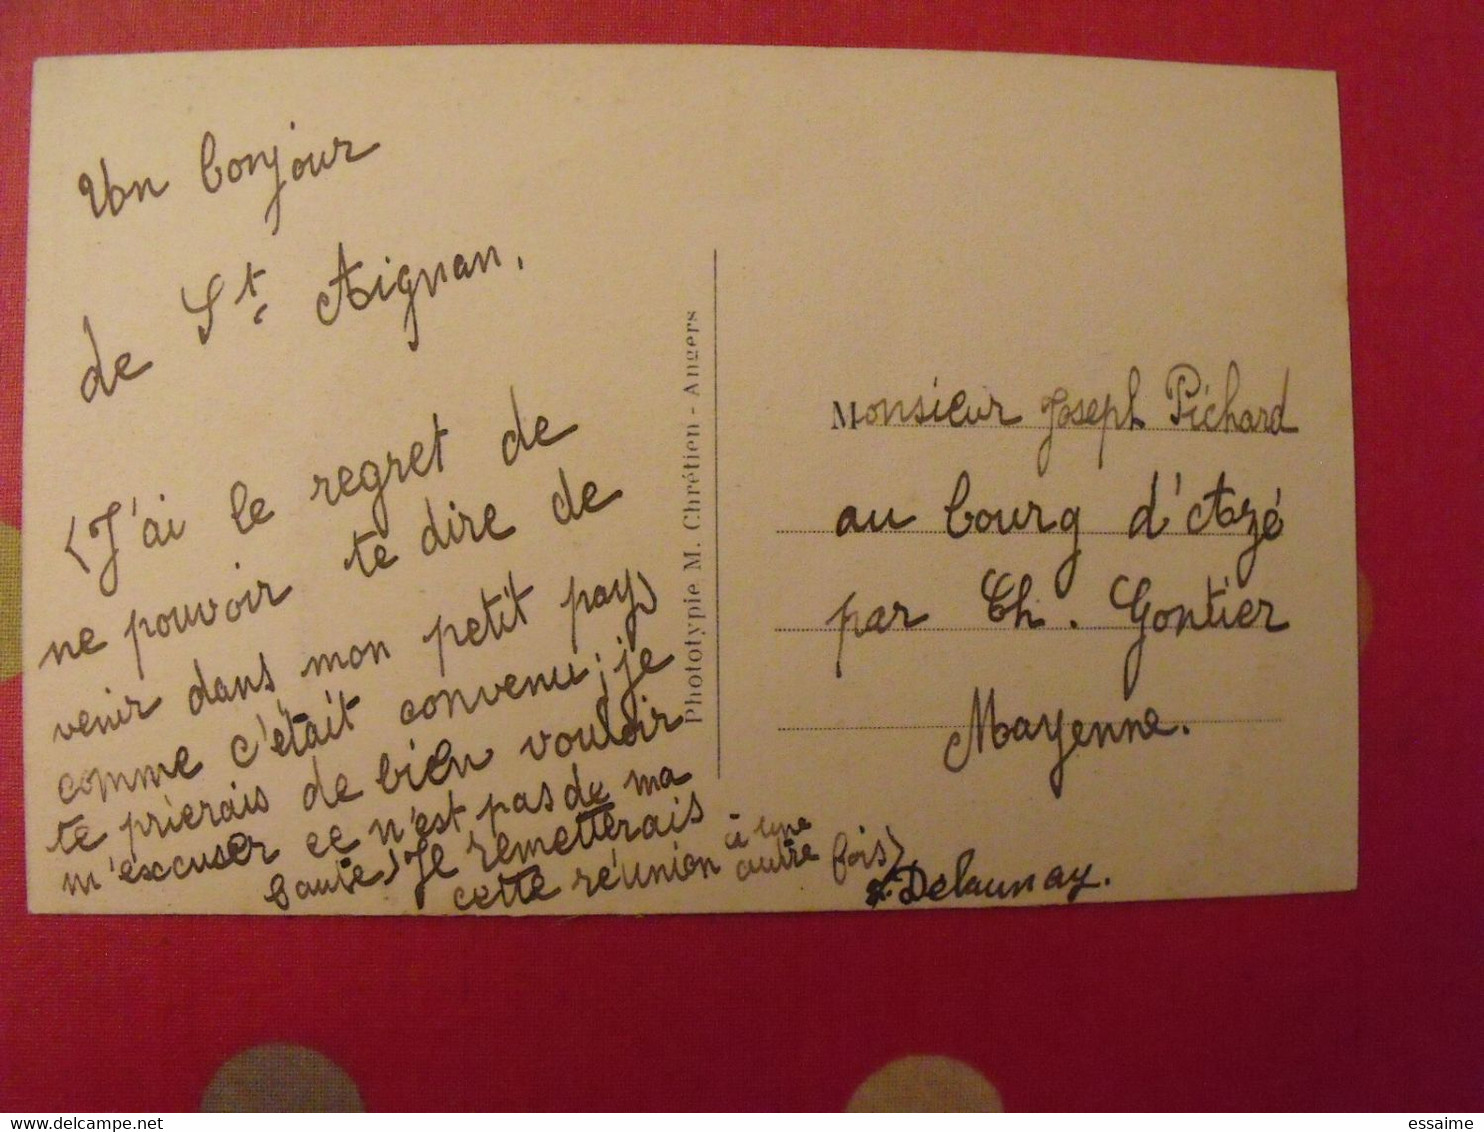 Un bonjour
de St. Aignan.
(J'ai le regret de
ne pouvoir te dire de
venir dans mon petit pays
comme c'était convenu; je
te prierais de bien vouloir
m'excuser ce n'est pas de ma
faute) Je remetterais
cette réunion à une
autre fois)
Delaunay.
Phototypie M. Chrétien - Angers
Monsieur Joseph Pichard
au bourg d'Azé
par Ch. Gontier
Mayenne.
essaime